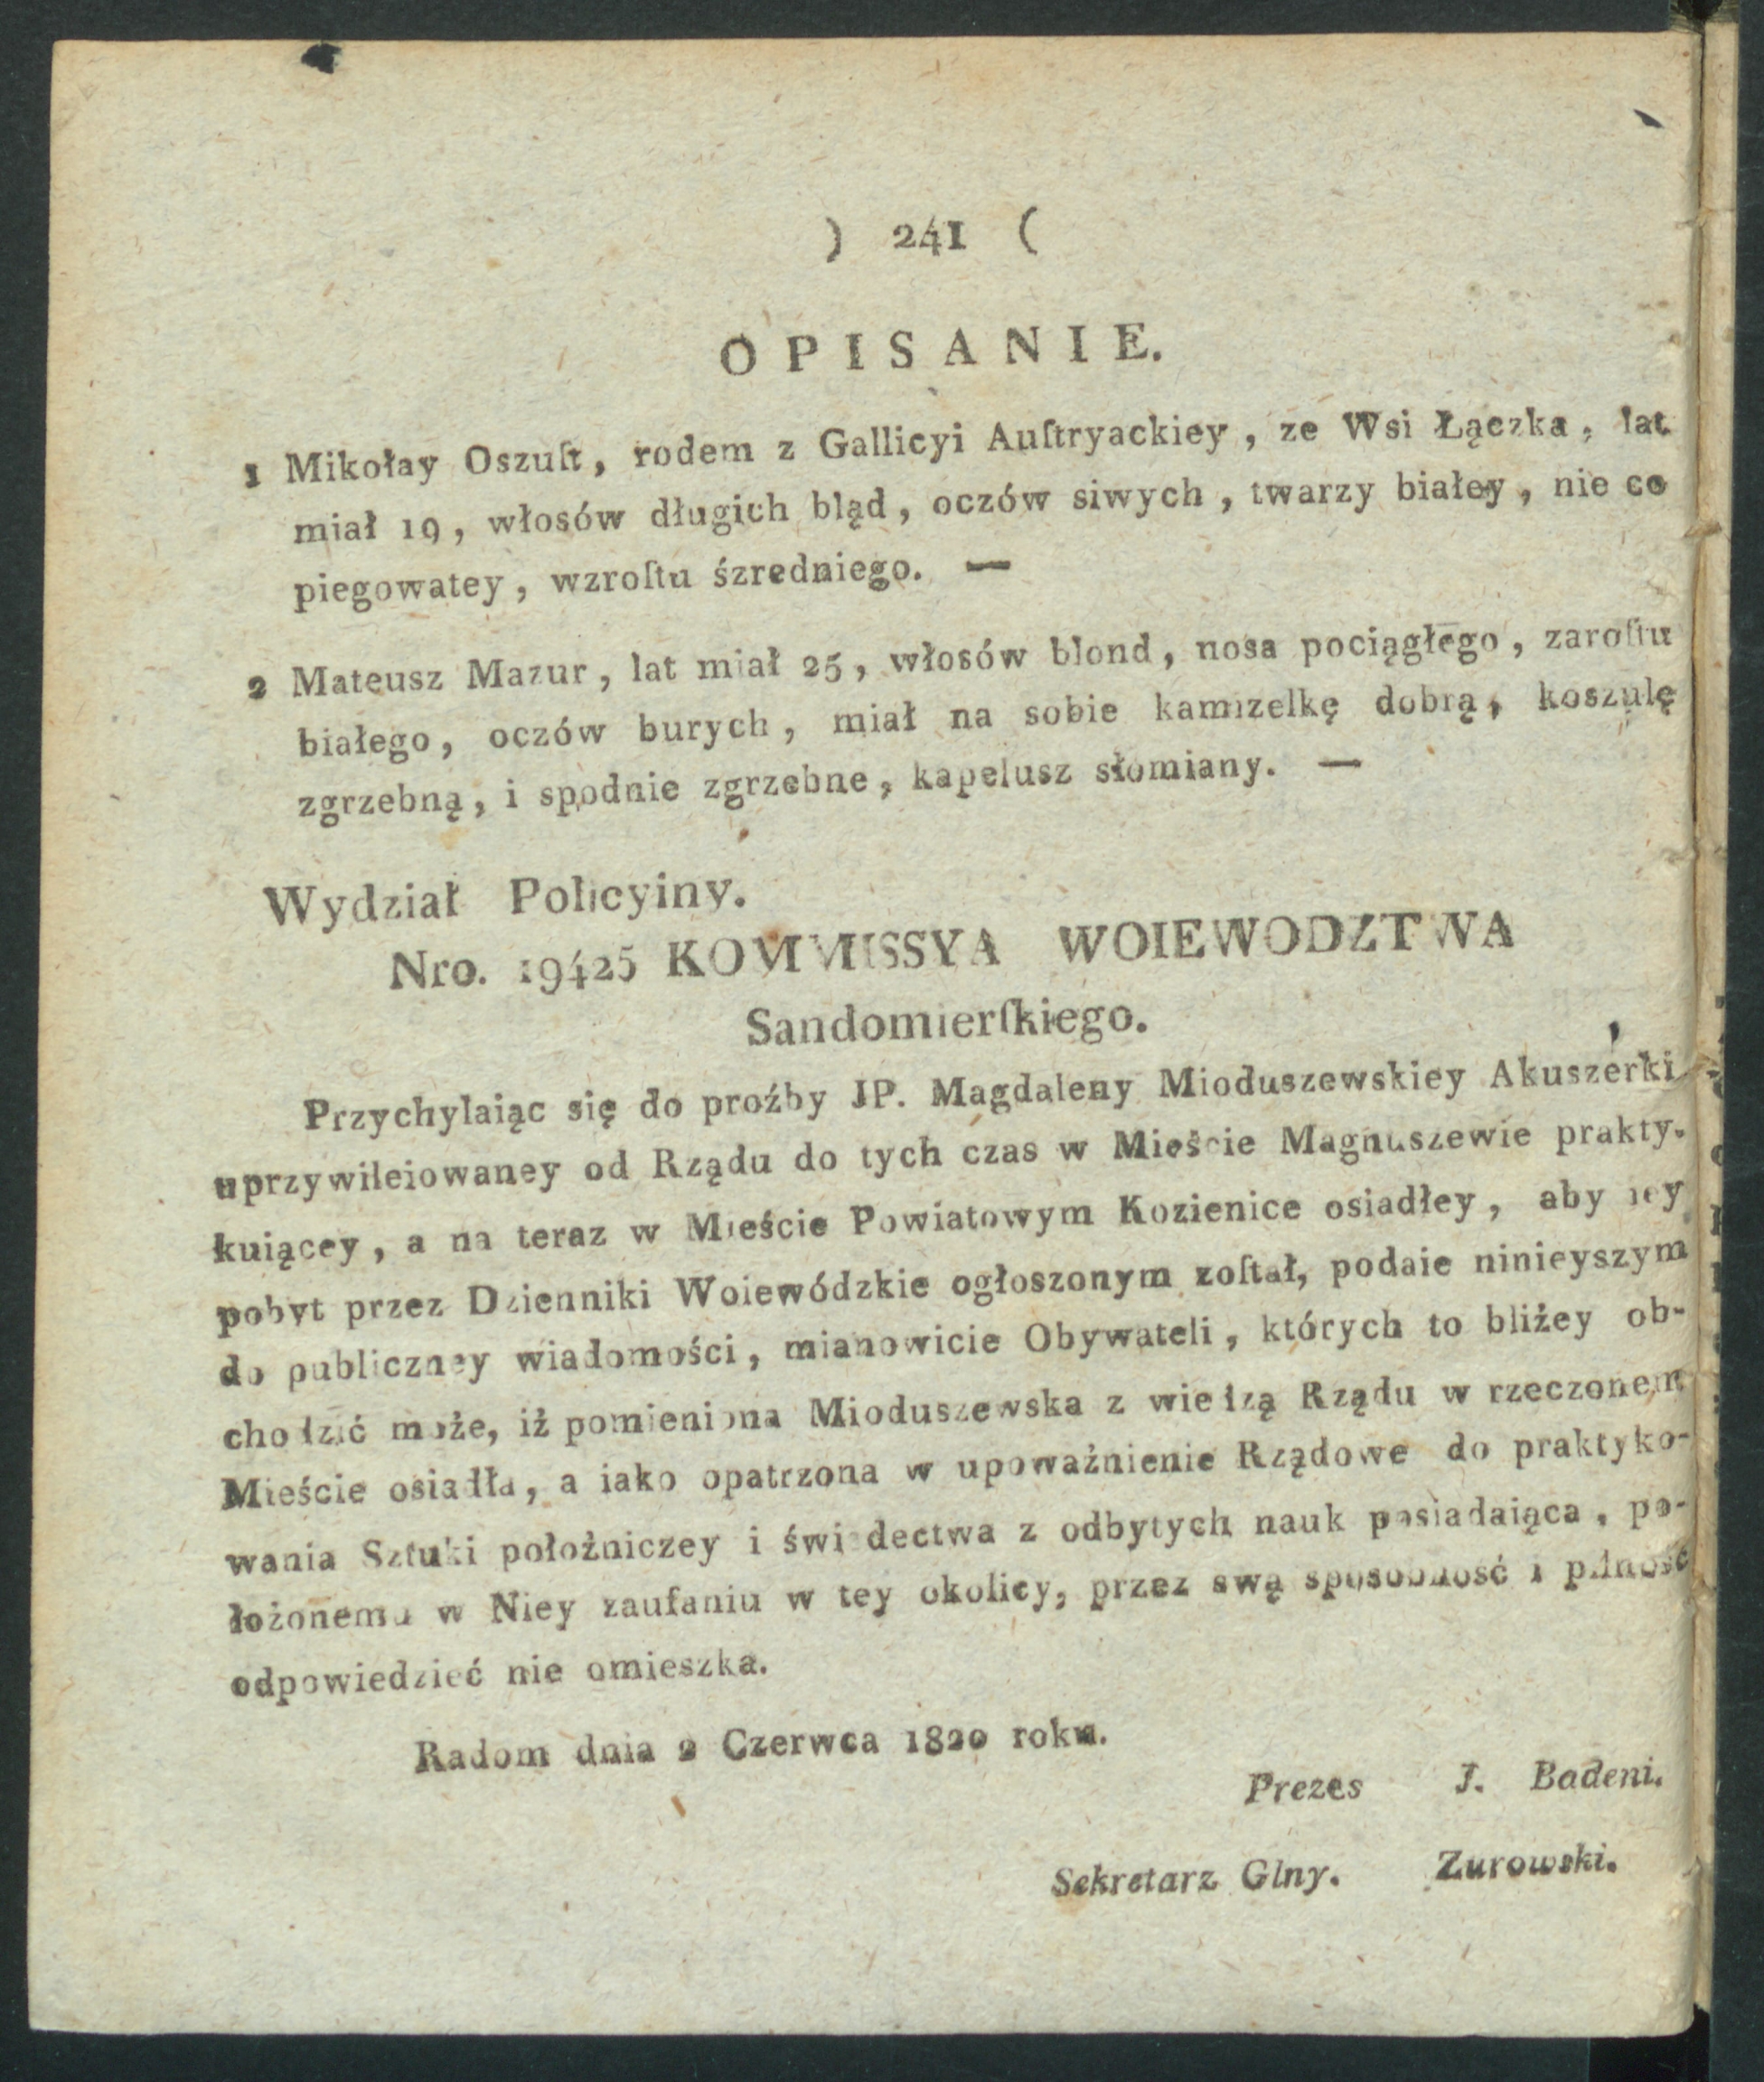 ) 241 (
OPISANIE.
1 Mikołay Oszuſt, rodem z Gallicyi Auſtryackiey, ze Wsi Łączka, lat
miał 19, włosów długich bląd, oczów siwych, twarzy białey, nie co
piegowatey, wzroſtu śzredniego. —
2 Mateusz Mazur, lat miał 25, włosów blond, nosa pociągłego, zaroſtu
białego, oczów burych, miał na sobie kamizelkę dobrą, koszulę
zgrzebną, i spodnie zgrzebne, kapelusz słomiany. —
Wydział Policyiny.
Nro. 19425 KOMMISSYA WOIEWODZTWA
Sandomierſkiego.
Przychylaiąc się do proźby JP. Magdaleny Mioduszewskiey Akuszerki
uprzywileiowaney od Rządu do tych czas w Mieście Magnuszewie prakty-
kuiącey, a na teraz w Mieście Powiatowym Kozienice osiadłey, aby iey
pobyt przez Dzienniki Woiewódzkie ogłoszonym zoſtał, podaie ninieyszym
do publiczney wiadomości, mianowicie Obywateli, których to bliżey ob-
chodzić może, iż pomieniona Mioduszewska z wiedzą Rządu w rzeczonem
Mieście osiadła, a iako opatrzona w upoważnienie Rządowe do praktyko-
wania Sztuki położniczey i świadectwa z odbytych nauk posiadaiąca, po-
łożonemu w Niey zaufaniu w tey okolicy, przez swą sposobność i pilność
odpowiedzieć nie omieszka.
Radom dnia 2 Czerwca 1820 roku.
Prezes J. Badeni.
Sekretarz Glny. Zurowski.